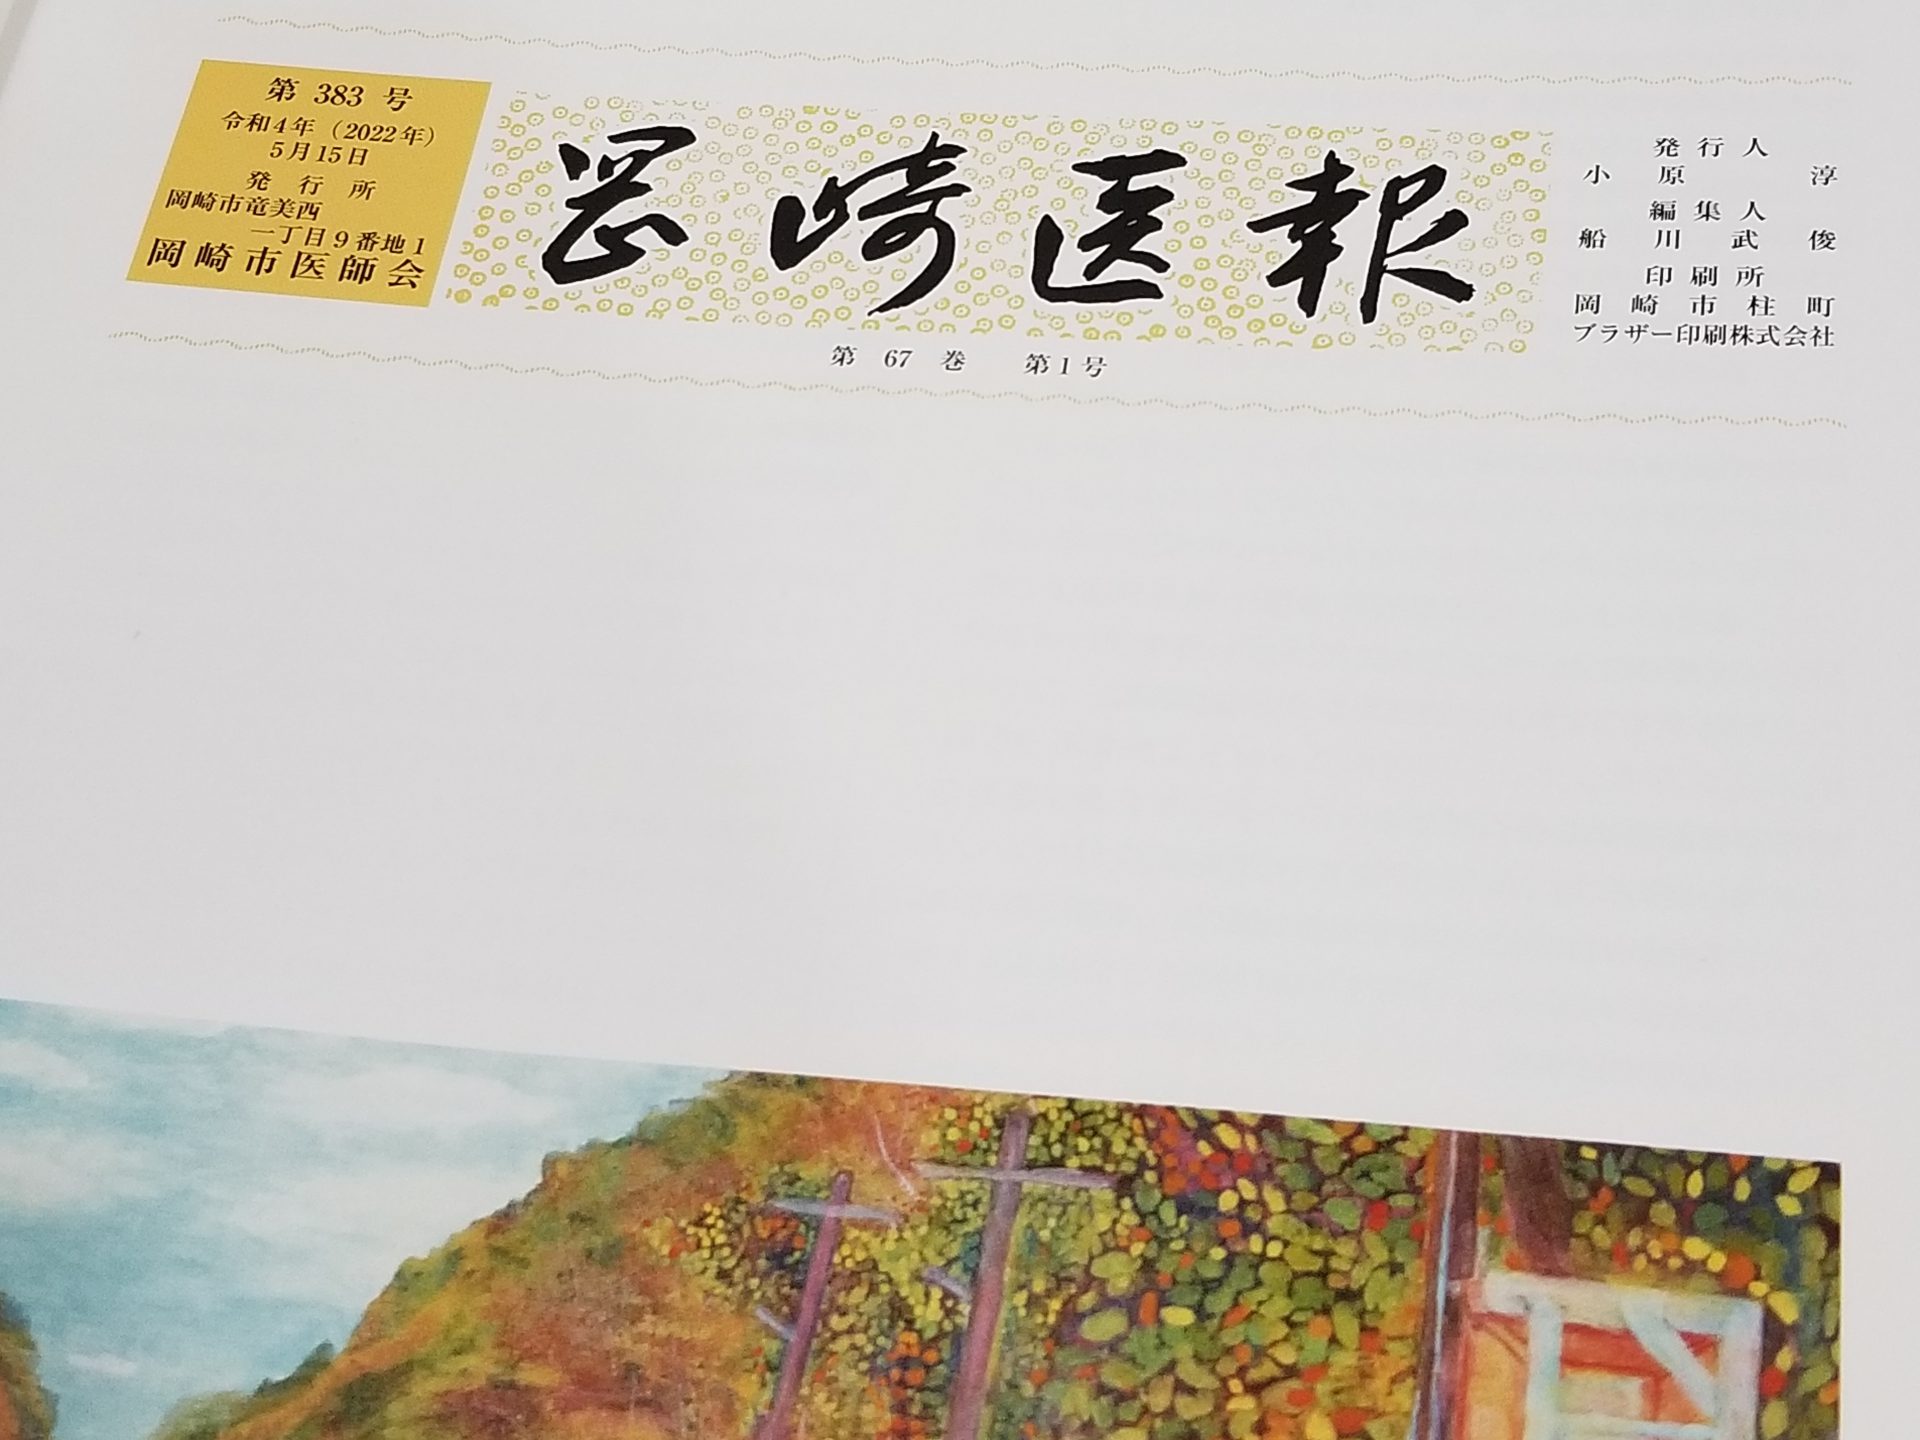 第 383 号
令和4年（2022年）
5月15日
発 行 所
岡崎市竜美西
一丁目9番地1
岡崎市医師会
岡崎医報
第 67 巻 第1号
発 行 人
小 原 淳
編 集 人
船 川 武 俊
印 刷 所
岡 崎 市 柱 町
ブラザー印刷株式会社